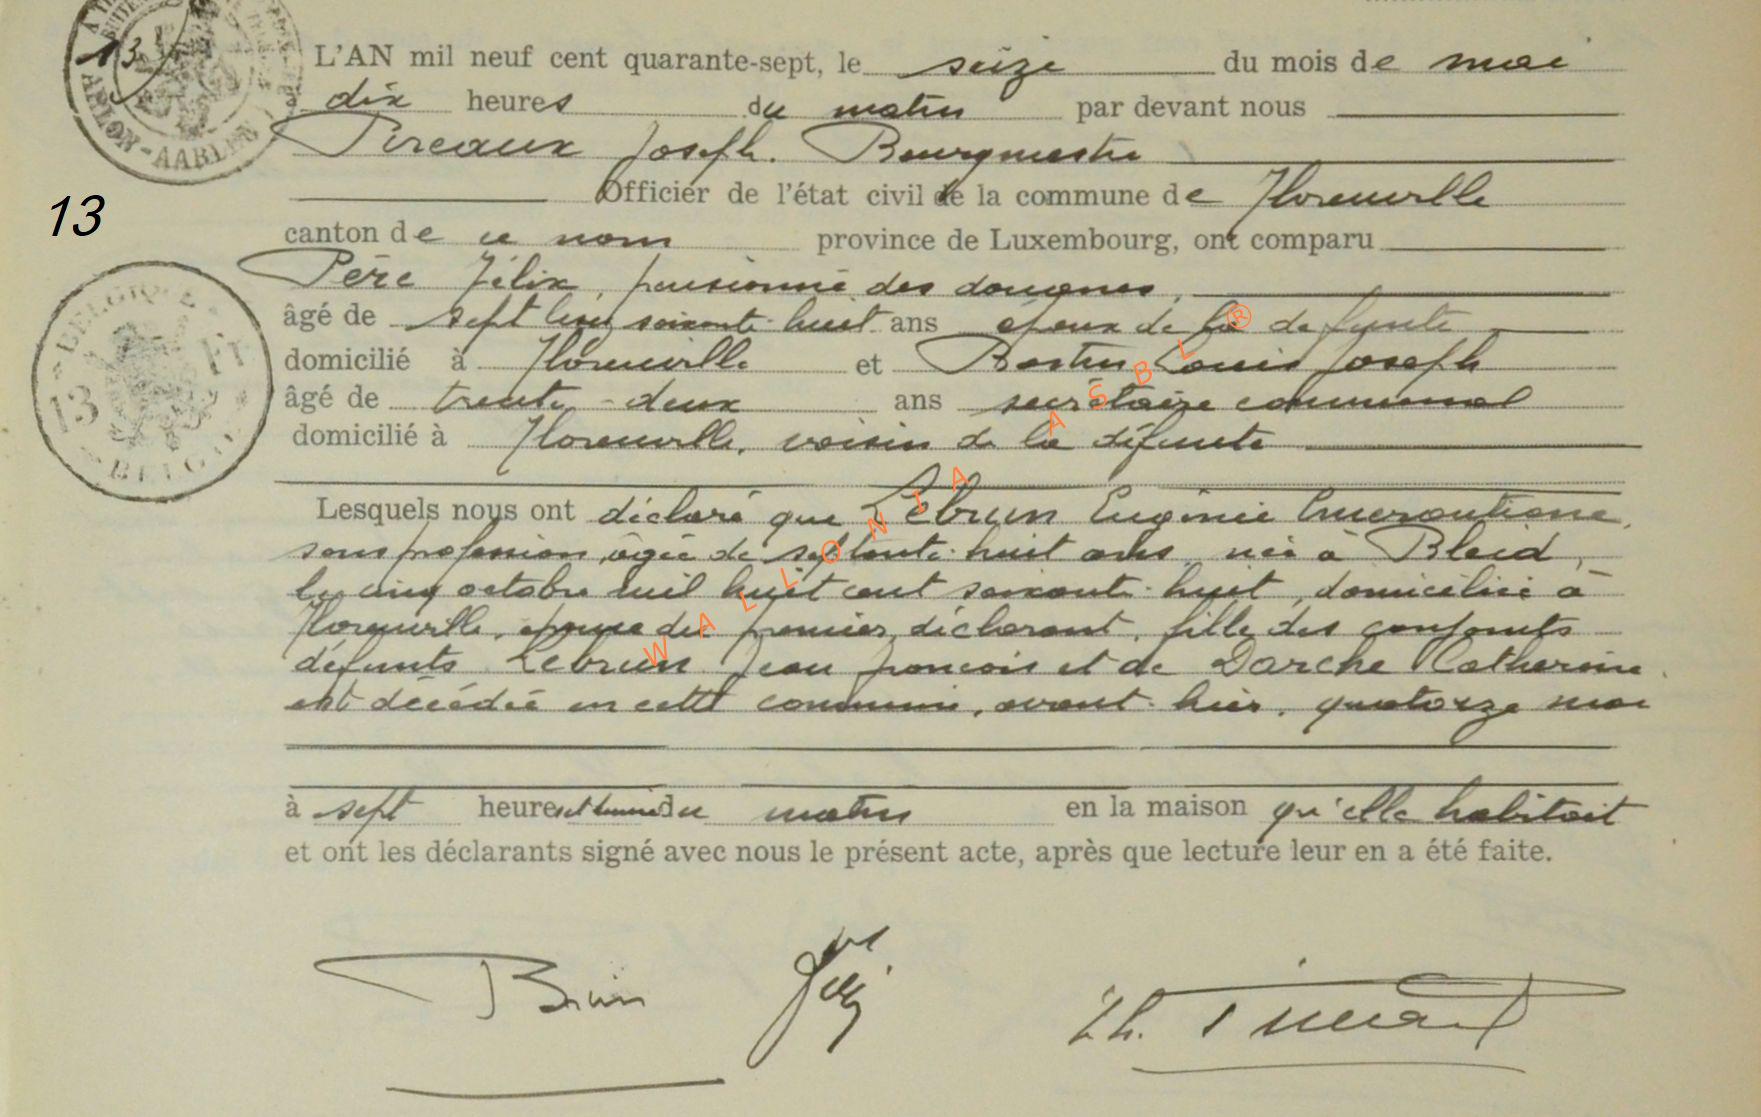 13
L'AN mil neuf cent quarante-sept, le seize du mois de mai
dix heures du matin par devant nous
Pireaux Joseph. Bourgmestre
Officier de l'état civil de la commune de Florenville
canton de ce nom province de Luxembourg, ont comparu
13
Père Félix, pensionné des douanes,
âgé de soixante-huit ans époux de la defunte
BELGIQUE
domicilié à Florenville et Bastin Louis Joseph
13 Fr
âgé de trente-deux ans secrétaire communal
domicilié à Florenville, voisin de la défunte
BELGIE
Lesquels nous ont déclaré que Lebrun Eugénie
sans profession, âgée de septante-huit ans, née à Bleid,
le cinq octobre mil huit cent soixante-huit, domiciliée à
Florenville, épouse du premier déclarant, fille des conjoints
défunts Lebrun Jean François et de Darche Catherine
est décédée en cette commune, avant-hier, quatorze mai
à sept heures et demie du matin en la maison qu'elle habitait
et ont les déclarants signé avec nous le présent acte, après que lecture leur en a été faite.
WALLONIA ASBL ®